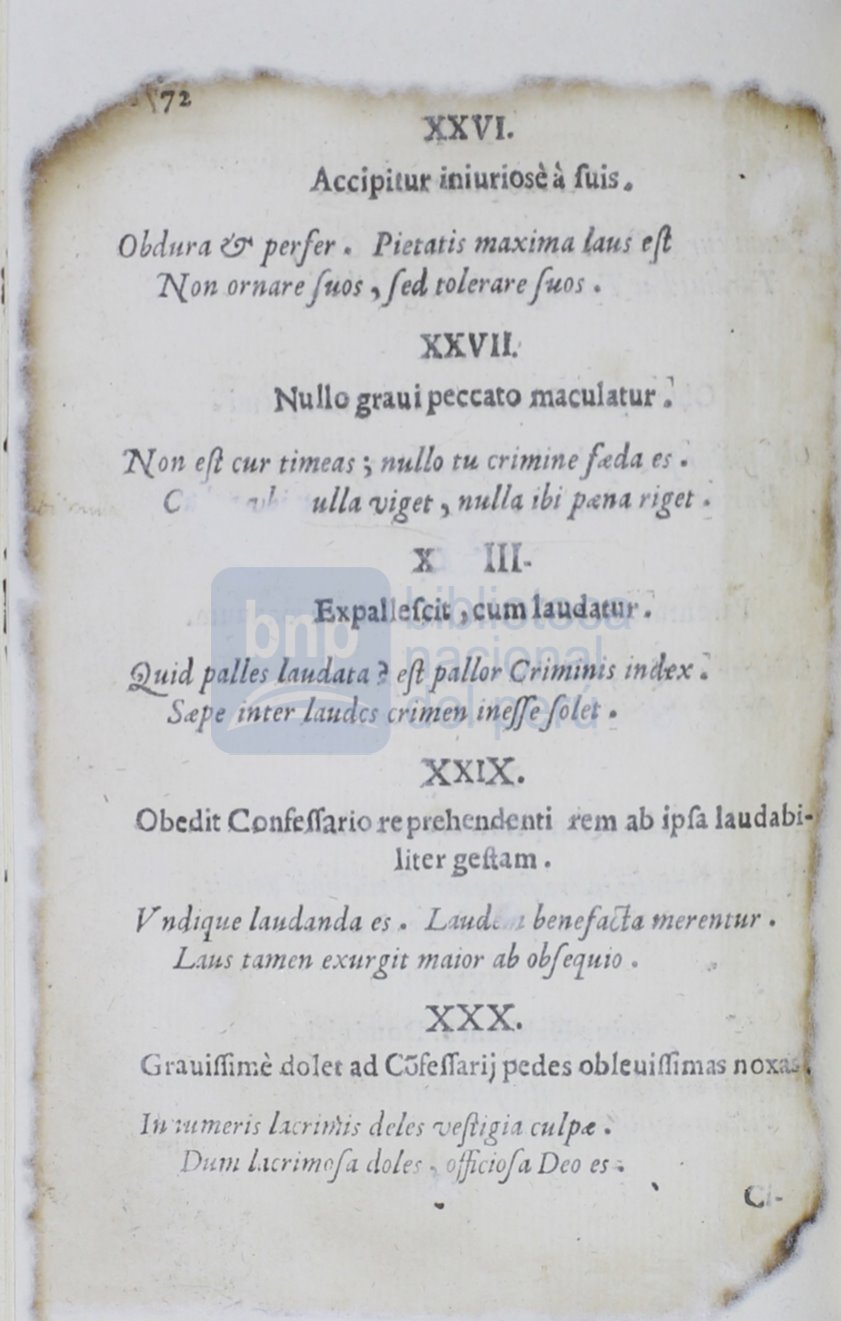 72
XXVI.
Accipitur iniuriosè à ſuis.
Obdura & perfer. Pietatis maxima laus eſt
Non ornare ſuos, ſed tolerare ſuos.
XXVII.
Nullo graui peccato maculatur.
Non eſt cur timeas; nullo tu crimine fæda es.
ulla viget, nulla ibi pæna riget.
X III.
Expalleſcit, cum laudatur.
Quid palles laudata? eſt pallor Criminis index.
Sæpe inter laudes crimen ineſſe ſolet.
XXIX.
Obedit Confeſſario reprehendenti rem ab ipſa laudabi-
liter geſtam.
Vndique laudanda es. benefacta merentur.
Laus tamen exurgit maior ab obſequio.
XXX.
Grauiſſimè dolet ad Cõfeſſarij pedes obleuiſſimas noxas.
Innumeris lacrimis deles veſtigia culpæ.
Dum lacrimoſa doles, officioſa Deo es.
bnp biblioteca
nacional
del perú